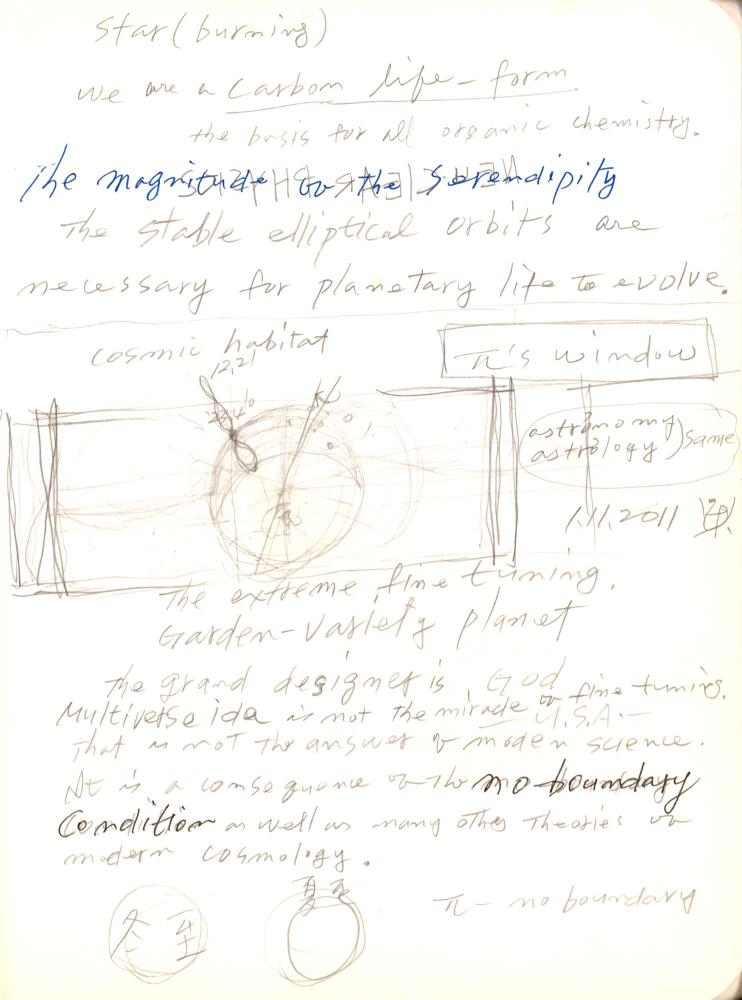 Star (burning)
we are a Carbon life-form
the basis for all organic chemistry.
The magnitude of the Serendipity
The stable elliptical orbits are
necessary for planetary life to evolve.
cosmic habitat
π's window
12,21
astronomy
astrology) same
1.11.2011
The extreme fine tuning.
Garden-Variety planet
The grand designer is God
Multiverse ida is not the miracle of fine tuning.
U.S.A.-
That is not the answer of modern science.
It is a consequence of the no-boundary
Condition as well as many other Theories of
modern cosmology.
夏至
冬至
π- no boundary